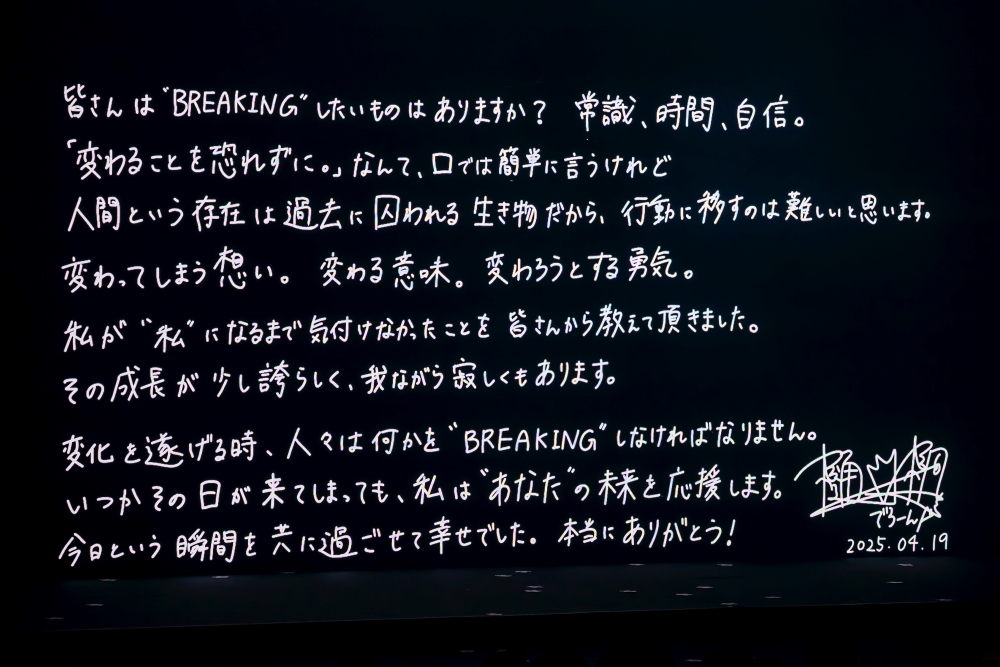 皆さんは"BREAKING"したいものはありますか？ 常識、時間、自信。
「変わることを恐れずに。」なんて、口では簡単に言うけれど
人間という存在は過去に囚われる生き物だから、行動に移すのは難しいと思います。
変わってしまう想い。 変わる意味。 変わろうとする勇気。
私が"私"になるまで気付けなかったことを皆さんから教えて頂きました。
その成長が少し誇らしく、我ながら寂しくもあります。
変化を遂げる時、人々は何かを"BREAKING"しなければなりません。
いつかその日が来てしまっても、私は"あなた"の未来を応援します。
今日という瞬間を共に過ごせて幸せでした。 本当にありがとう！
でろーん
2025.04.19